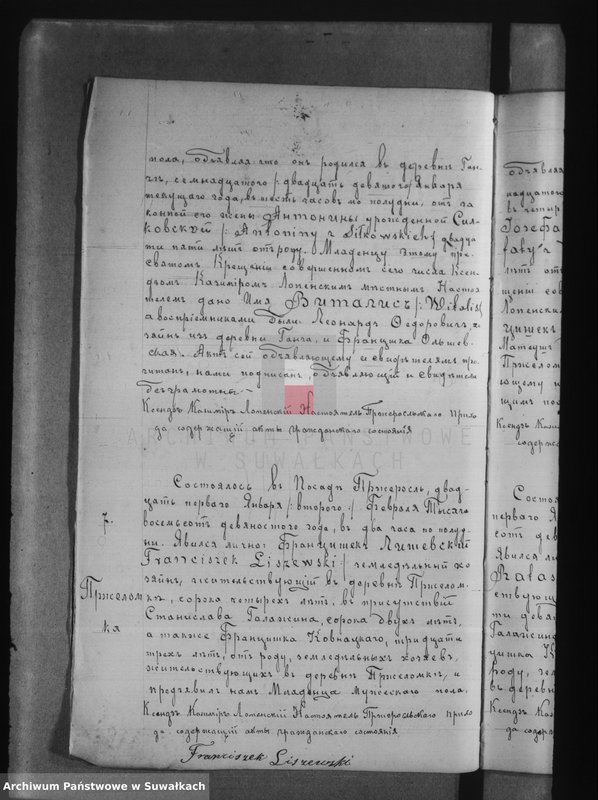 пола, объявляя что онъ родился въ деревни Ган-
чи, семнадцатого /: двадцать девятого/ Января
текущего года, въ шесть часовъ по полудни, отъ за
конной его жены Антонины урожденной Сил-
ковской /: Antoniny z Siłkowskich/ двадца
ти пяти лѣтъ отъ роду. Младенцу этому при
святомъ Крещении совершенномъ сего числа Ксен-
дзомъ Казиміромъ Лопенскимъ мѣстнымъ Насто
телемъ дано Имя Виталисъ /: Witalis/
а воспріемниками были Леонардъ Федоровичъ хо
зяинъ изъ деревни Ганча, и Францишка Ольшев-
ская. Актъ сей объявляющему и свидѣтелямъ про
читанъ, нами подписанъ, объявляющій и свидѣтели
безграмотны.
Ксендзъ Казиміръ Лопенскій Настоятель Пржеросльскаго Прихо
да содержащій акты гражданскаго состоянія
ARCHIWUM PAŃSTWOWE
W SUWAŁKACH
7.
Пржелом
ка
Состоялось въ Посадѣ Пржеросль, двад-
цать перваго Января /: второго :/ Февраля Тысяча
восемьсотъ девяностого года, въ два часа по полуд-
ни. Явился лично: Францишекъ Лишевскій
Franciszek Liszewski/ земледѣльный хо
зяинъ, жительствующій въ деревни Пржелом-
кѣ, сорока четырехъ лѣтъ, въ присутствіи
Станислава Галажина, сорока двухъ лѣтъ,
а также Францишка Ковнацкаго, тридцати
трехъ лѣтъ, отъ роду, земледѣльныхъ хозяевъ,
жительствующихъ въ деревни Пржеломкѣ, и
предъявилъ намъ Младенца Мужескаго пола,
Ксендзъ Казиміръ Лопенскій Настоятель Пржеросльскаго Прихо
да содержащій акты гражданскаго состоянія
Franciszek Liszewski
объявляя
надцатого
въ четыр
Józefa
лѣтъ отъ
щеніи сов
Лопенски
цишек
Матеушъ
Прželом
ющему и
щимъ по
Ксендзъ Кази
содержа
Состоя
перваго Я
сотъ дев
Явился ли
Rafał
ствующ
ти дева
Галажин
цишка К
роду, зем
въ деревн
Ксендзъ Кази
да содерж
Archiwum Państwowe w Suwałkach